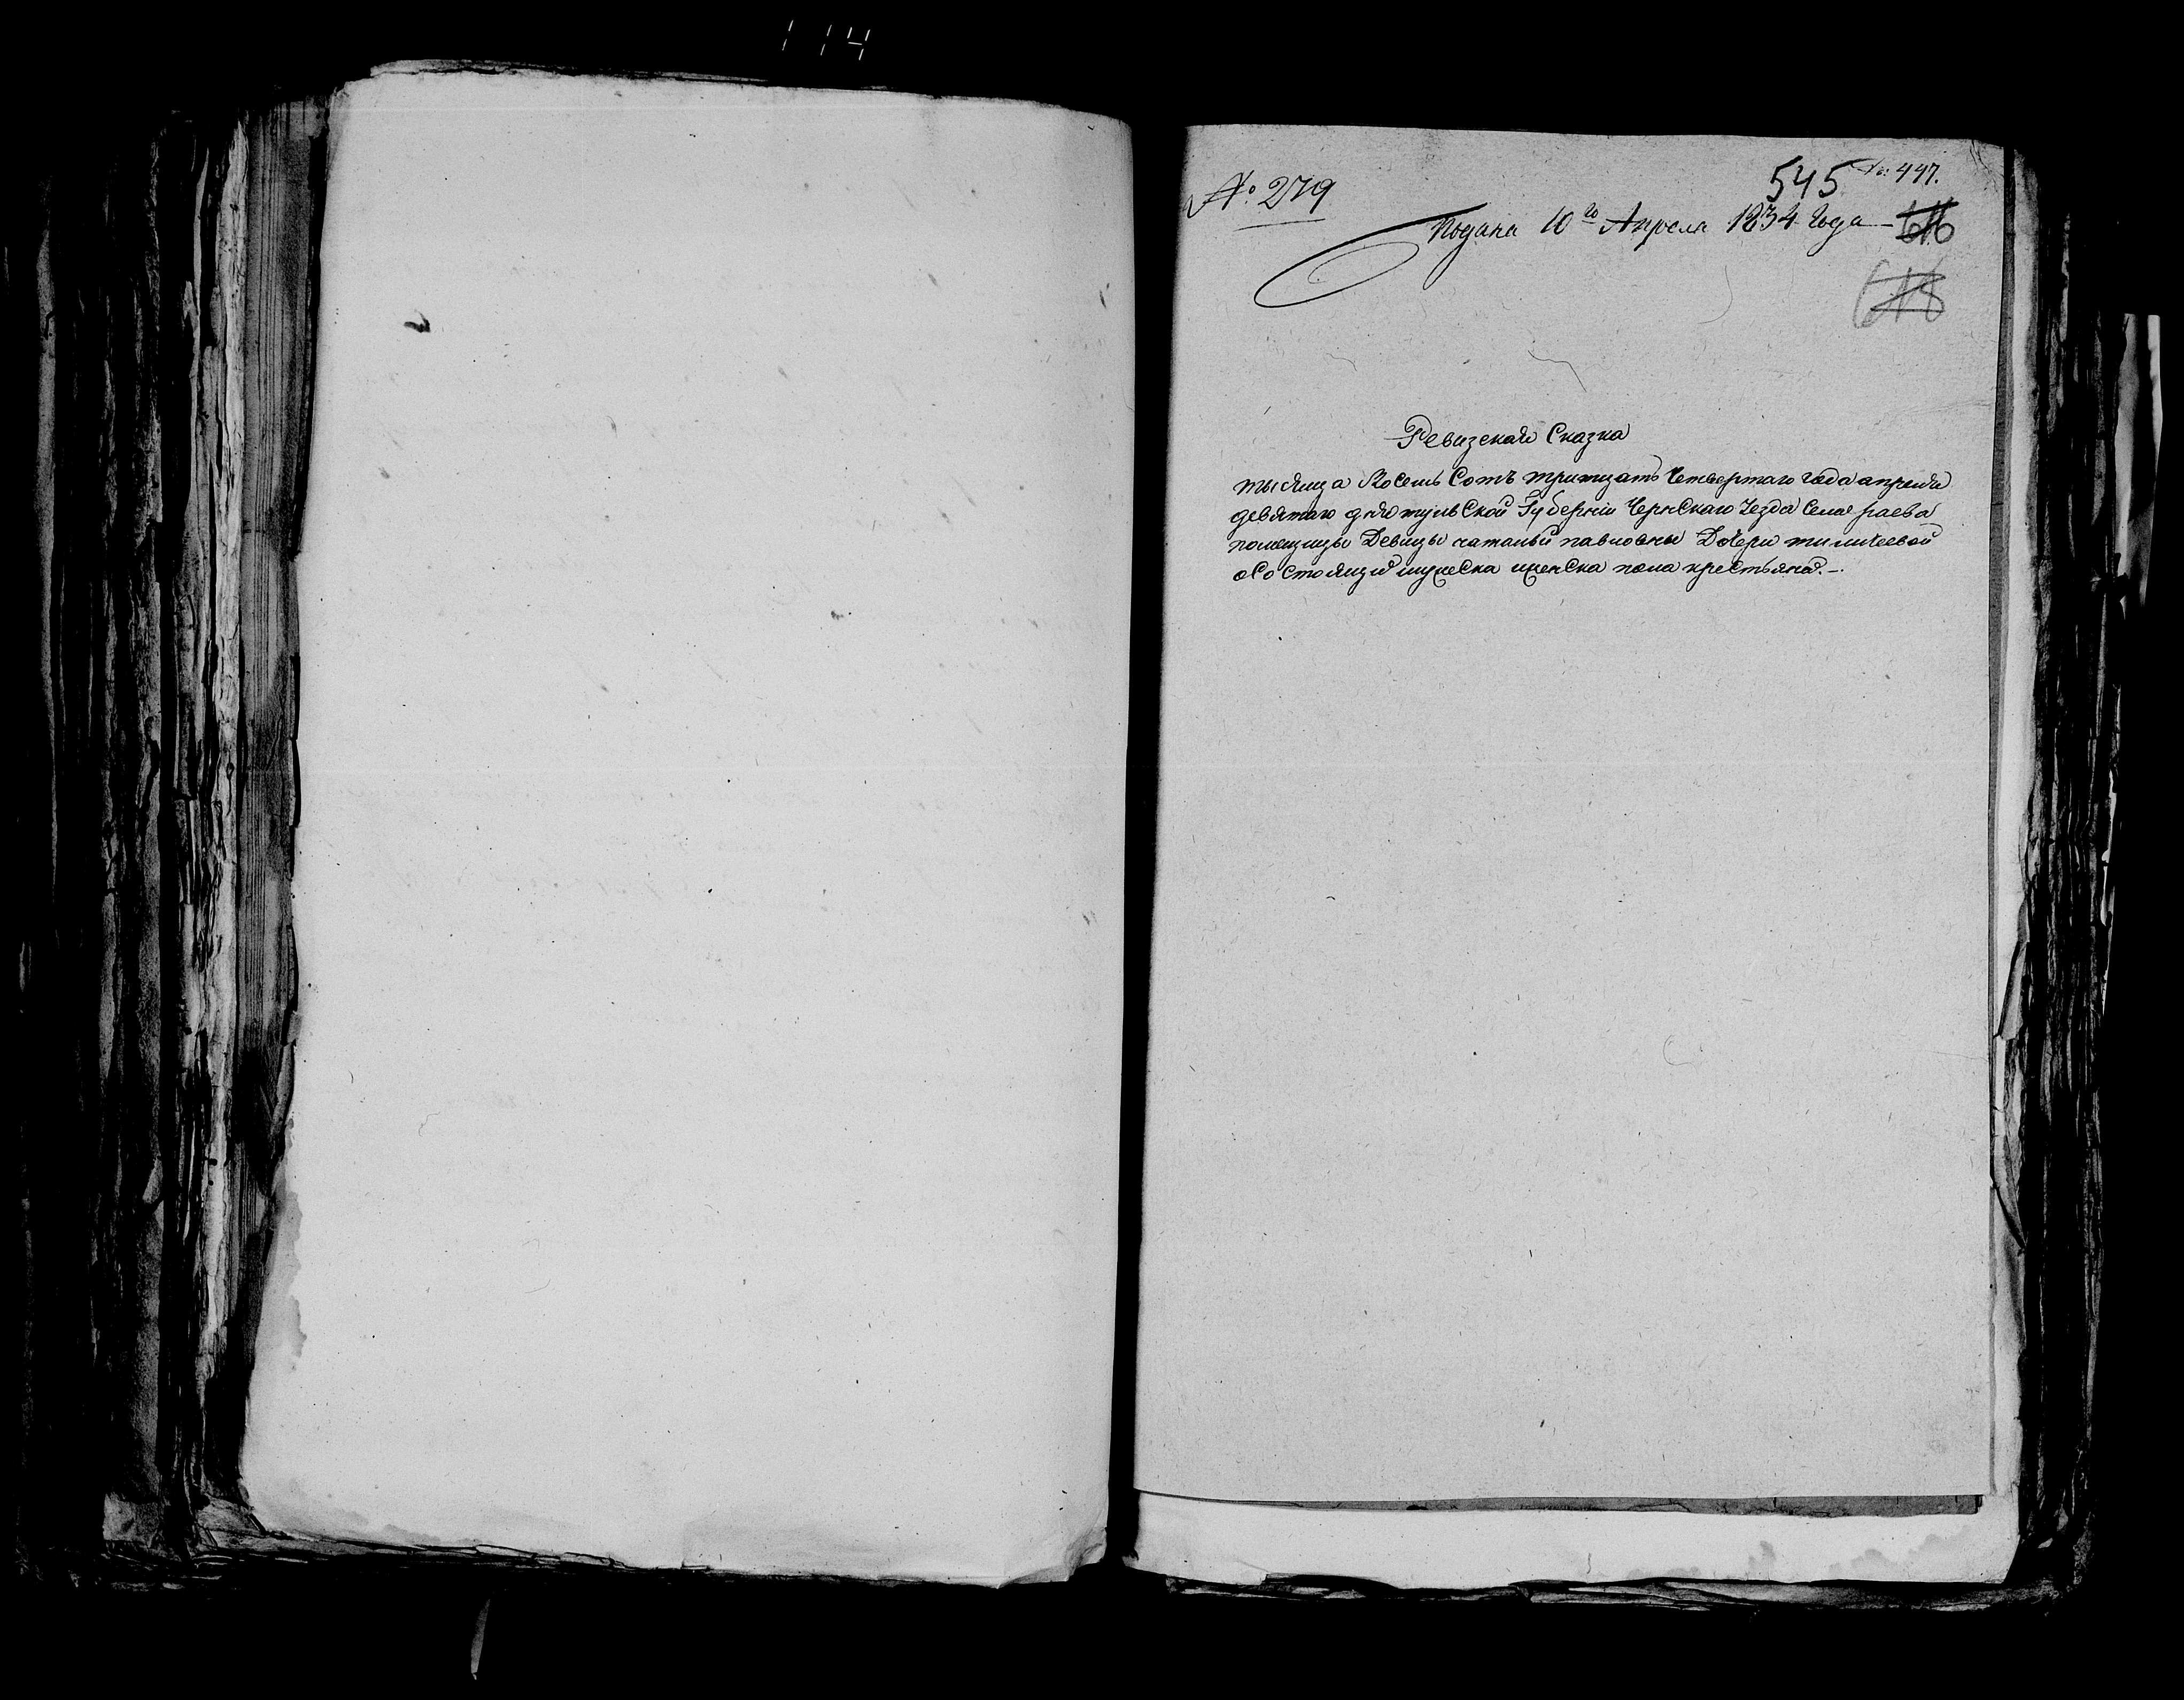 114
№ 279
545 № 447.
Подана 10го Апреля 1834 Года
Ревизская Сказка
тысяща Восемь Сотъ тритцать Четвертаго Года апреля
девятаго дня тульской Губернии Чернскаго Уезда Села раева
помещицы Девицы натальи павловны Дочери тимичеевой
осостоящих мужеска иженска пола крестьяна.